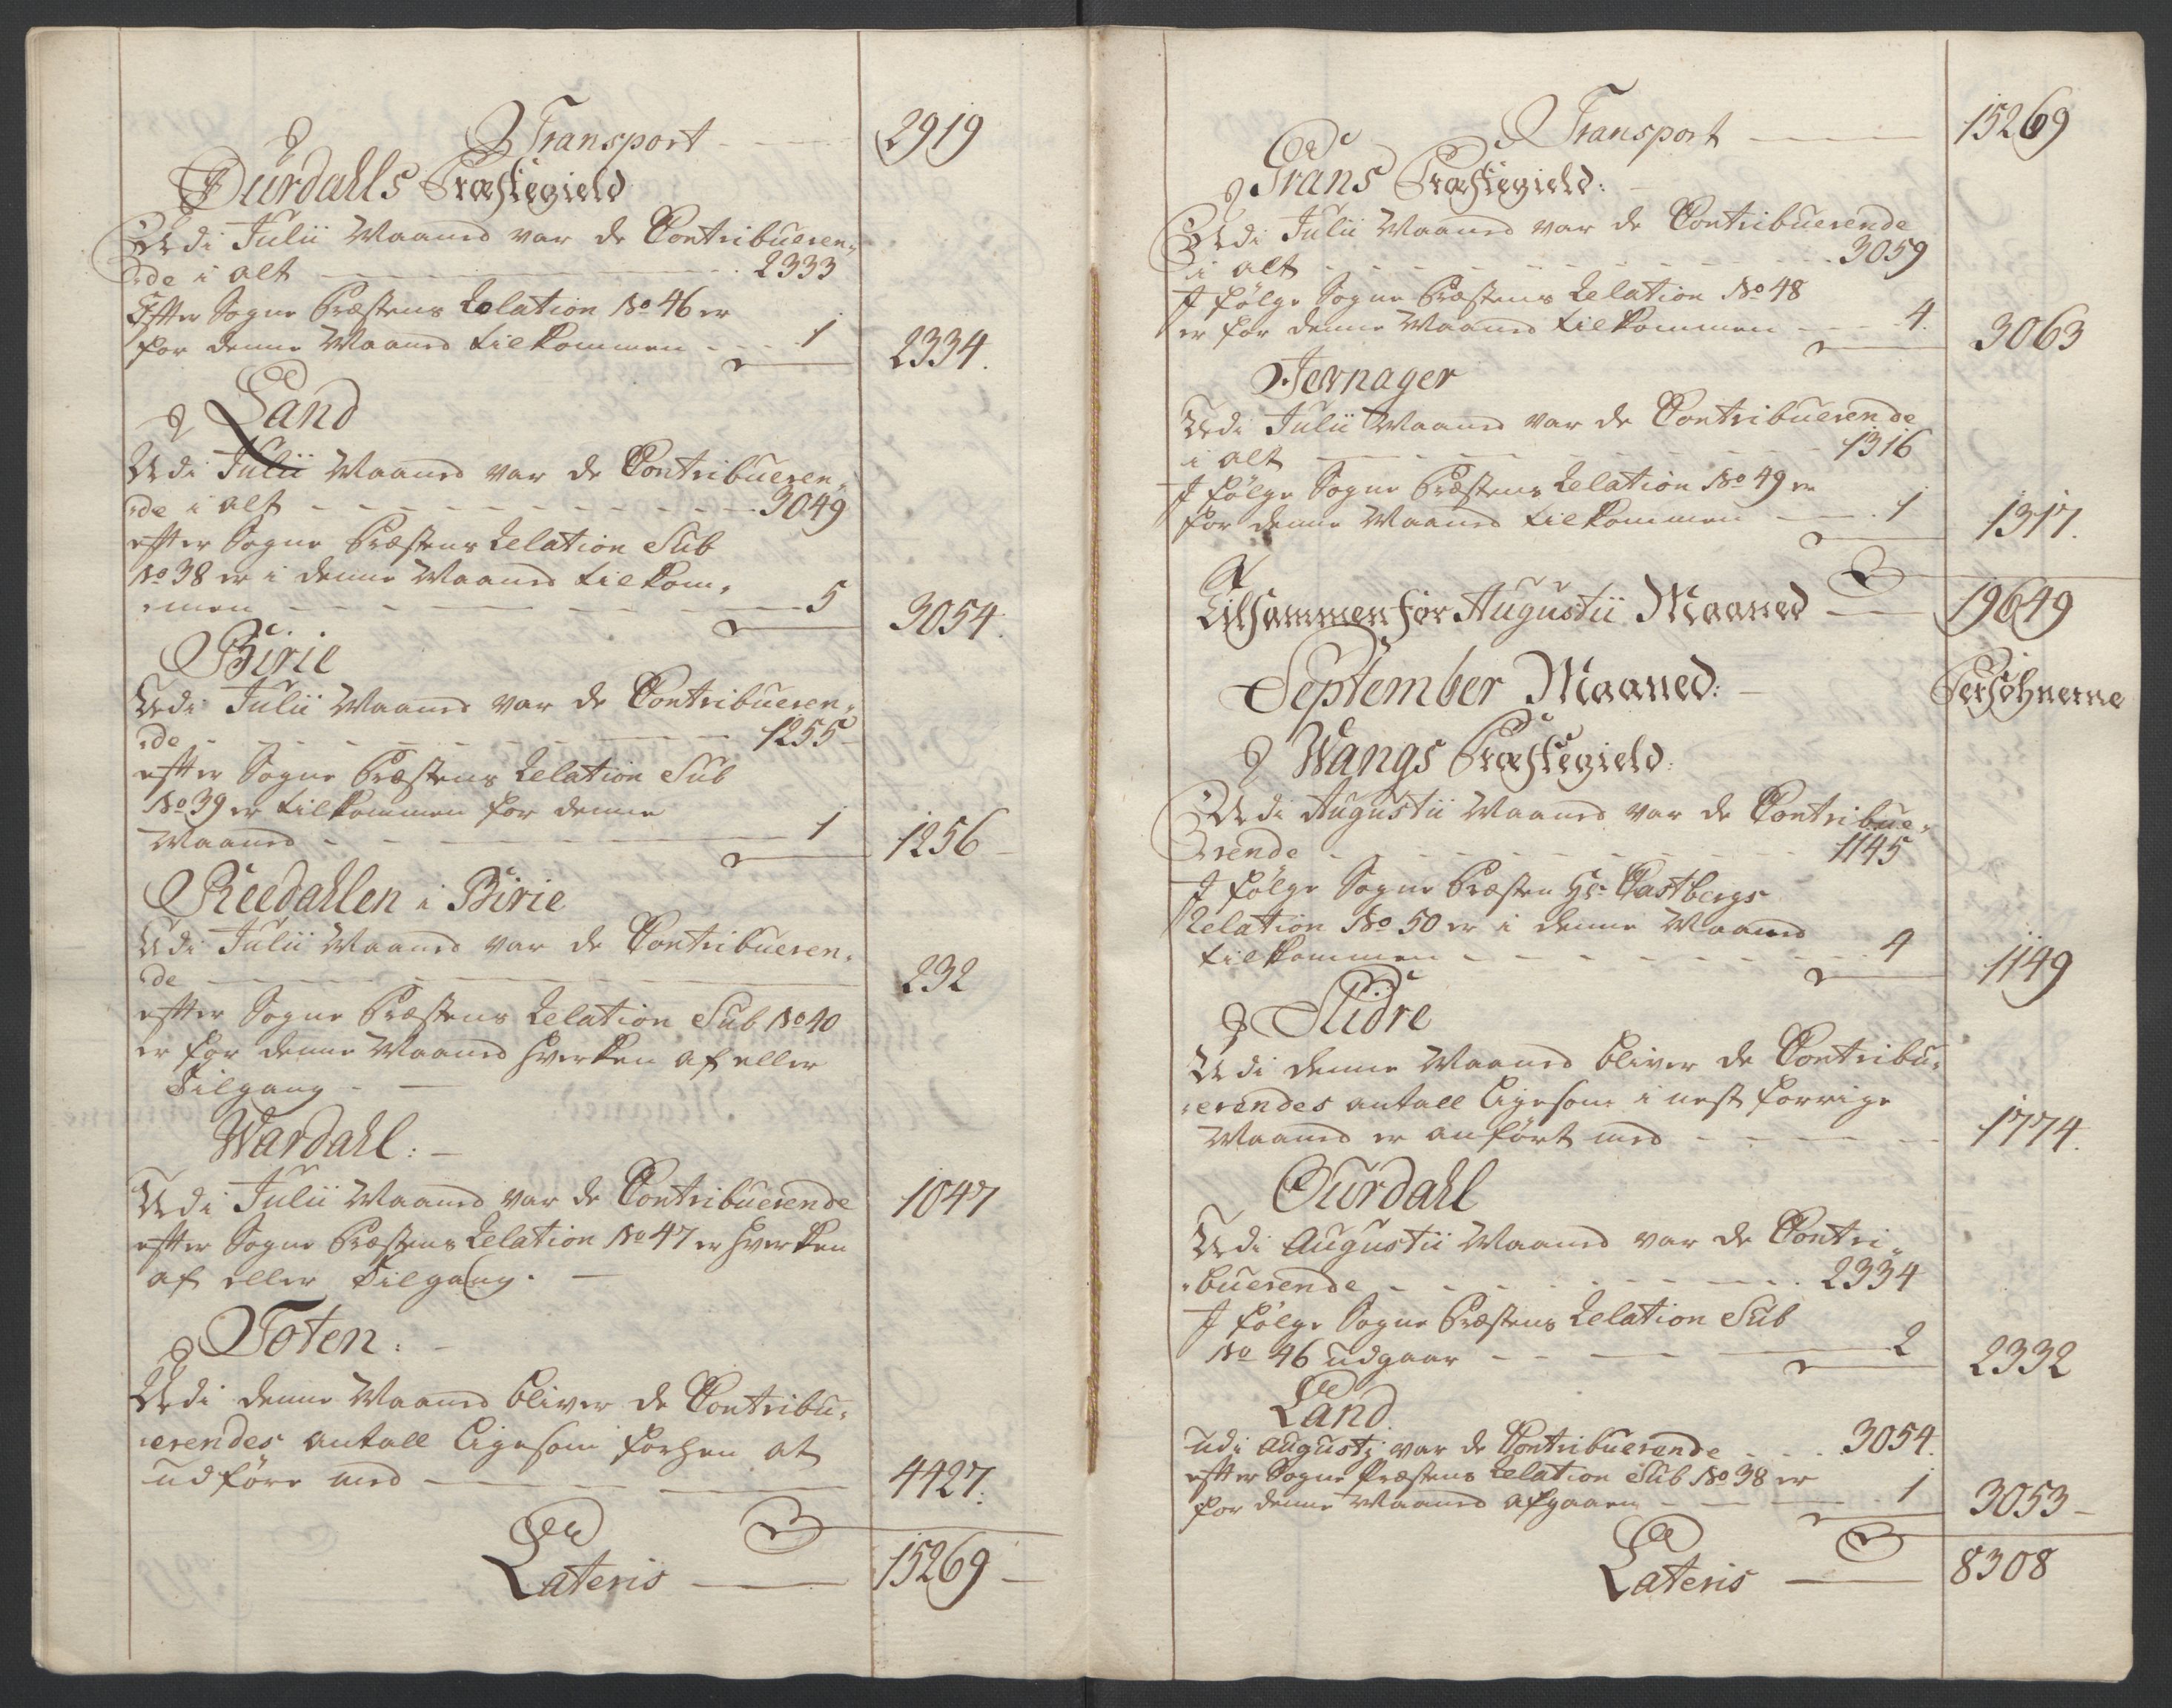 Transport - - - 2919
Ourdahls Præstegield
Udi Julii Maaned var de Contribueren¬
de i alt - - - 2333
Efter Sogne Præstens Relation No 46 er
for denne Maaned tilkommen - - - 1 2334.
Land
Udi Julii Maaned var de Contribueren¬
de i alt - - - 3049
efter Sogne Præstens Relation Sub
No 38 er i denne Maaned tilkom¬
men - - - 5 3054.
Birie
Udi Julii Maaned var de Contribueren¬
de - - - 1255
efter Sogne Præstens Relation Sub
No 39 er tilkommen for denne
Maaned - - - 1 1256
Reedahlen i Birie
Udi Julii Maaned var de Contribueren¬
de - - - 232
efter Sogne Præstens Relation Sub No 40
er for denne Maaned hverken af eller
Tilgang -
Wardahl: -
Udi Julii Maaned var de Contribuerende 1047
efter Sogne Præstens Relation No 47 er hverken
af eller Tilgang. -
Toten: -
Udi denne Maaned bliver de Contribu¬
erendes antall ligesom forhen at
udføre med - - - 4427.
Lateris - 15269 -
Transport - 15269
Grans Præstegield:
Udi Julii Maaned var de Contribuerende
i alt - - - 3059
I følge Sogne Præstens Relation No 48
er for denne Maaned tilkommen - - - 4. 3063
Jevnager
Udi Julii Maaned var de Contribuerende
i alt - - - 1316
I følge Sogne Præstens Relation No 49 er
for denne Maaned tilkommen - - - 1 1317.
Tilsammen for Augustii Maaned - 19649
September Maaned: - Persohnerne
Wangs Præstegield:
Udi Augustii Maaned var de Contribue¬
rende - - - 1145
I følge Sogne Præsten Hr. Castbergs
Relation No 50 er i denne Maaned
tilkommen - - - 4 1149
Slidre
Udi denne Maaned bliver de Contribu¬
erendes antall ligesom i nest forrige
Maaned er anført med - - - 1774.
Ourdahl
Udi Augustii Maaned var de Contri¬
buerende - - - 2334
I følge Sogne Præstens Relation Sub
No 46 udgaar - - - 2 2332
Land
udi Augustj var de Contribuerende - - - 3054.
efter Sogne Præstens Relation Sub No 38 er
for denne Maaned afgaaen - - - 1 3053 -
Lateris - 8308